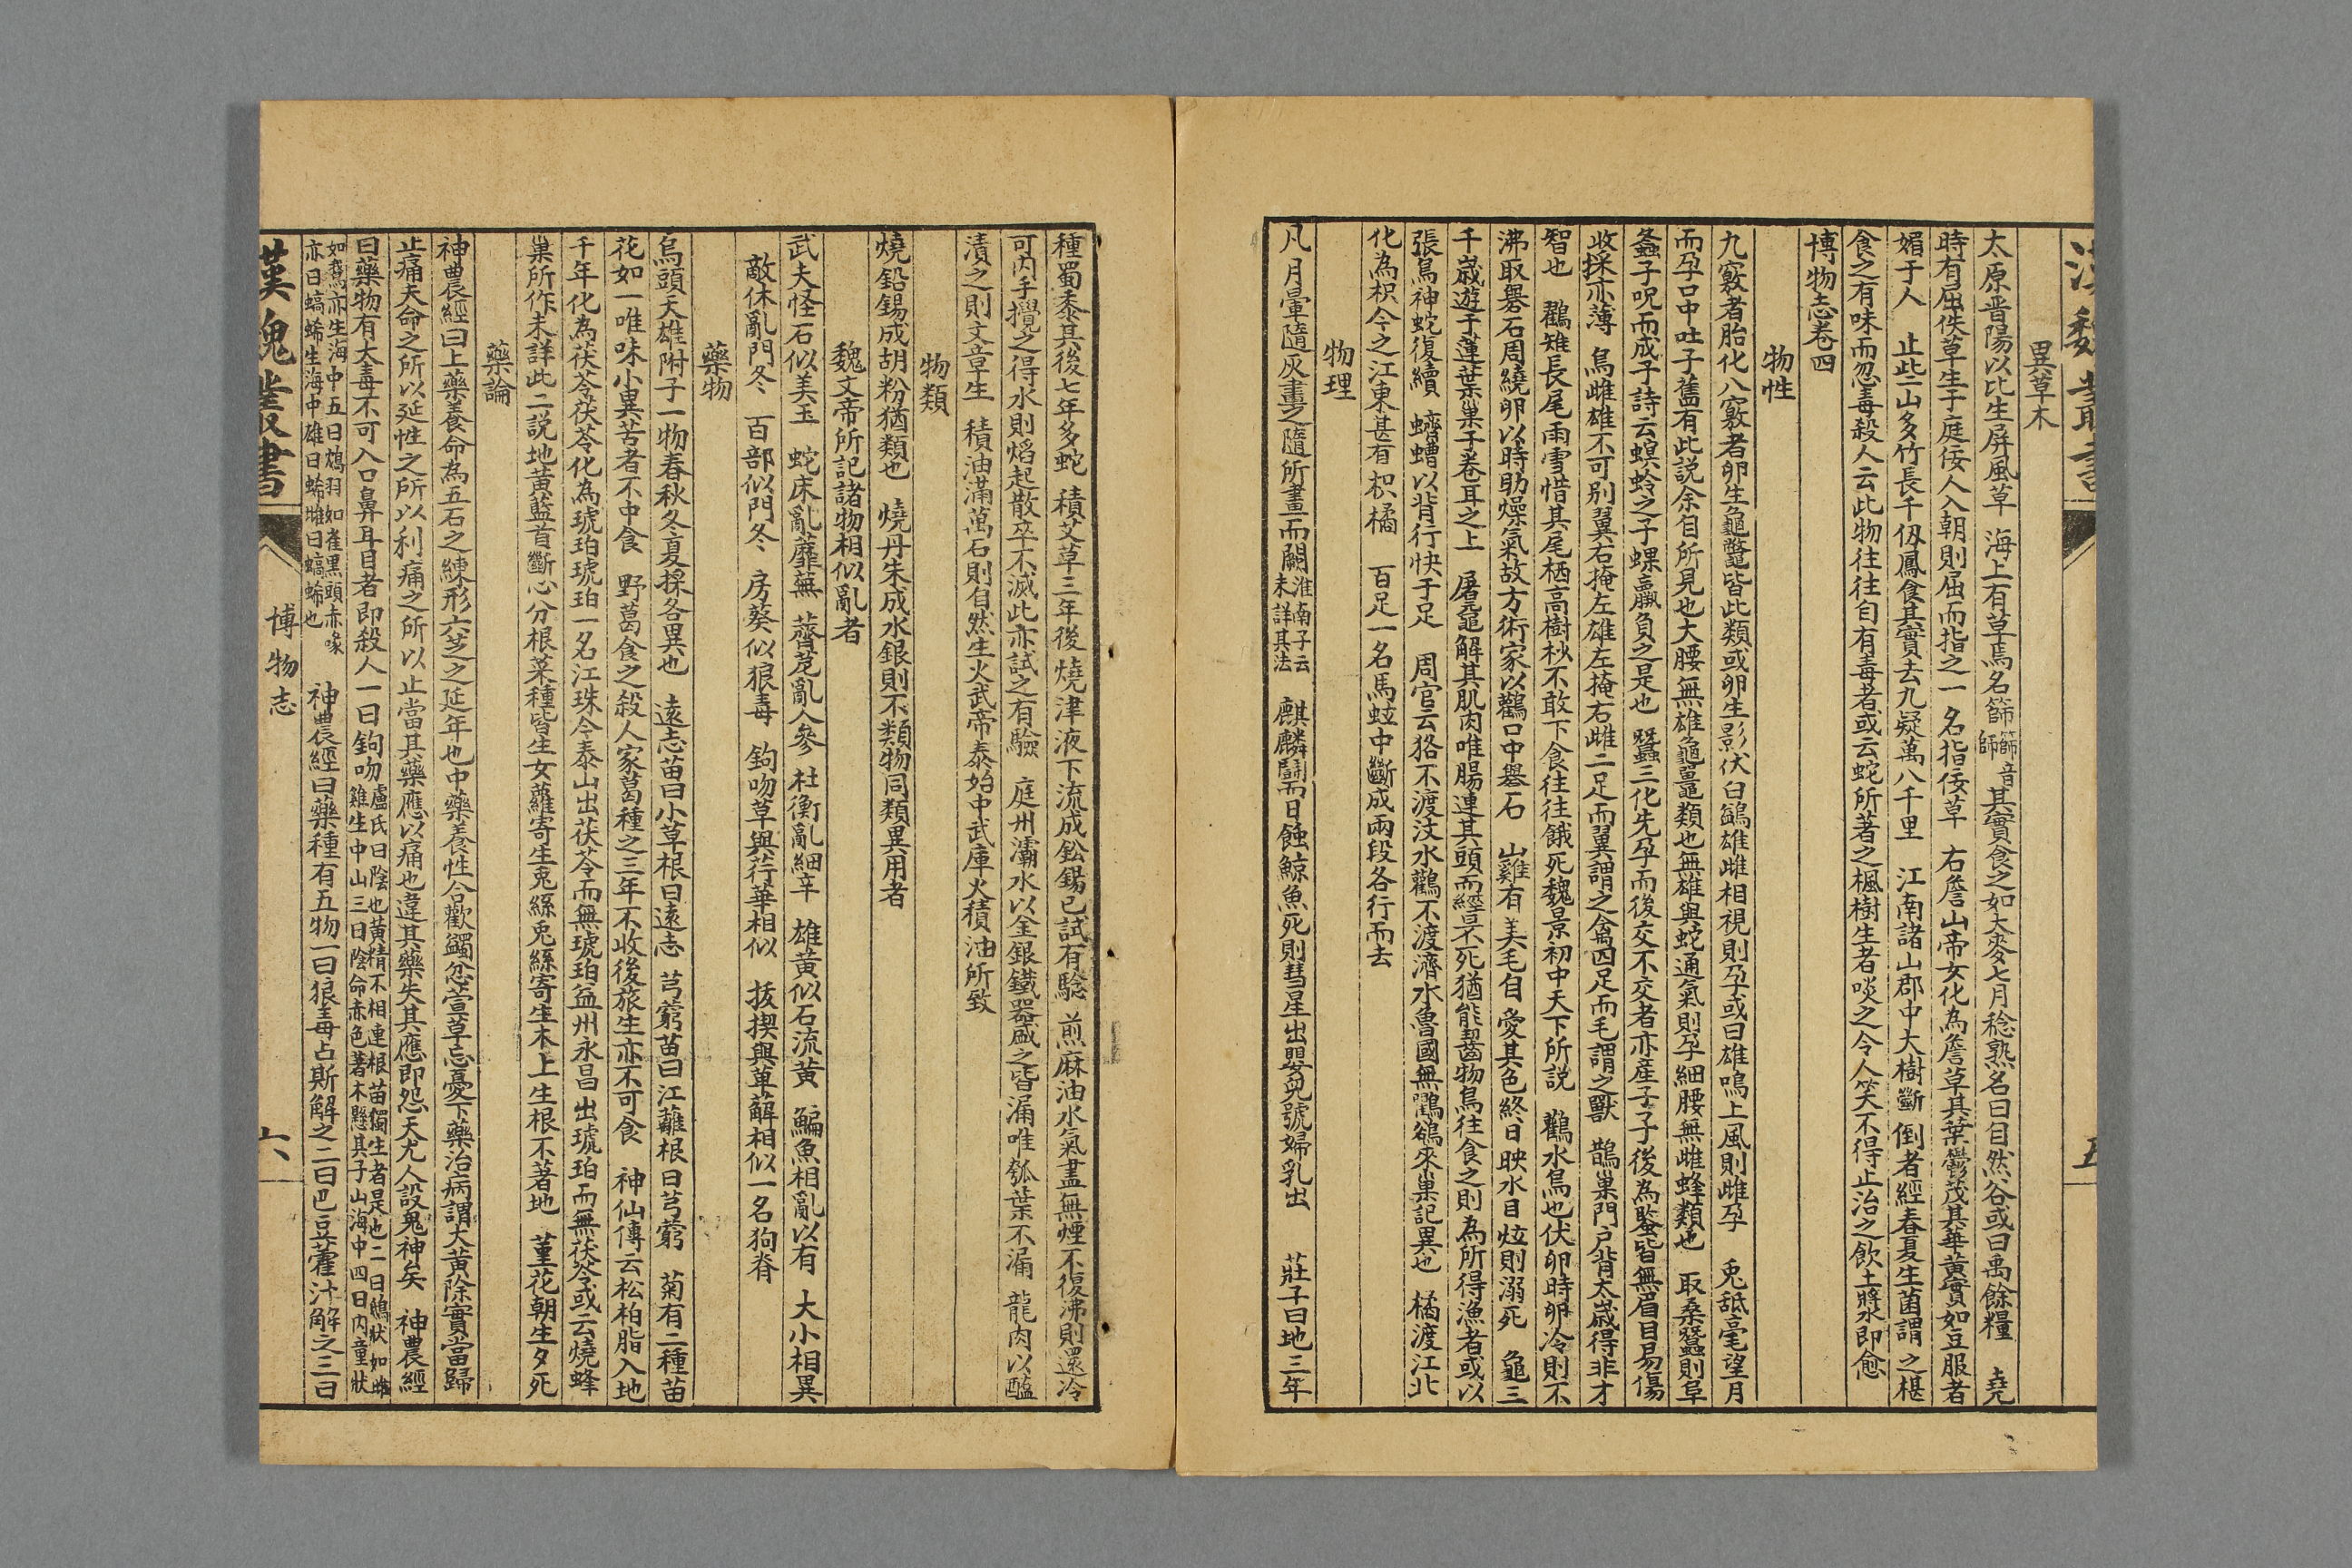 漢魏叢書
五
異草木
太原晋陽以北生屏風草 海上有草焉名篩音師其實食之如大麥七月稔熟名曰自然谷或曰禹餘糧 堯
時有屈佚草生于庭佞人入朝則屈而指之一名指佞草 右詹山帝女化為詹草其葉鬱茂其華黄實如豆服者
媚于人 止些山多竹長千仭鳳食其實去九疑萬八千里 江南諸山郡中大樹斷倒者經春夏生菌謂之椹
食之有味而忽毒殺人云此物往往自有毒者或云蛇所著之楓樹生者啖之令人笑不得止治之飲土漿水即愈
博物志卷四
物性
九竅者胎化八竅者卵生龜鼈皆此類或卵生影伏白鷁雄雌相視則孕或曰雄鳴上風則雌孕 兎舐毫望月
而孕口中吐子舊有此説余自所見也大腰無雄龜鼉類也無雄與蛇通氣則孕細腰無雌蜂類也 取桑蠶則阜
螽子呪而成子詩云螟蛉之子蜾蠃負之是也 蠶三化先孕而後交不交者亦産子子後為䖢皆無眉目易傷
收採亦薄 鳥雌雄不可别翼右掩左雄左掩右雌二足而翼謂之禽四足而毛謂之獸 鵲巢門户背太歲得非才
智也 鸐雉長尾雨雪惜其尾栖高樹杪不敢下食往往餓死魏景初中天下所説 鸛水鳥也伏卵時卵冷則不
沸取礜石周繞卵以時助燥氣故方術家以鸛口中礜石 山雞有美毛自愛其色終日映水目炫則溺死 龜三
千歲遊于蓮葉巢于卷耳之上 屠龜解其肌肉唯腸連其頭而經日不死猶能齧物鳥往食之則為所得漁者或以
張鳥神蛇復續 蠐螬以背行快于足 周官云狢不渡汶水鸛不渡濟水魯國無鸜鵒來巢記異也 橘渡江北
化為枳今之江東甚有枳橘 百足一名馬蚿中斷成兩段各行而去
物理
凡月暈隨灰畫之隨所畫而闕淮南子云未詳其法 麒麟鬭而日蝕鯨魚死則彗星出嬰兒號婦乳出 莊子曰地三年
種蜀黍其後七年多蛇 積艾草三年後燒津液下流成鈆錫已試有驗 煎麻油水氣盡無煙不復沸則還冷
可内手攪之得水則焰起散卒不滅此亦試之有驗 庭州灞水以金銀鐵器盛之皆漏唯瓠葉不漏 龍肉以醢
漬之則文章生 積油滿萬石則自然生火武帝泰始中武庫火積油所致
物類
燒鉛錫成胡粉猶類也 燒丹朱成水銀則不類物同類異用者
魏文帝所記諸物相似亂者
武夫怪石似美玉 蛇床亂蘼蕪 薺苨亂人參 杜衡亂細辛 雄黄似石流黄 鯿魚相亂以有 大小相異
敵休亂門冬 百部似門冬 房葵似狼毒 鉤吻草與荇華相似 拔揳與萆薢相似一名狗脊
藥物
烏頭天雄附子一物春秋冬夏採各異也 遠志苗曰小草根曰遠志 芎藭苗曰江蘺根曰芎藭 菊有二種苗
花如一唯味小異苦者不中食 野葛食之殺人家葛種之三年不收後旅生亦不可食 神仙傳云松柏脂入地
千年化為茯苓茯苓化為琥珀琥珀一名江珠今泰山出茯苓而無琥珀益州永昌出琥珀而無茯苓或云燒蜂
巢所作未詳此二説地黄藍首斷心分根菜種皆生女蘿寄生兎絲兎絲寄生木上生根不著地 堇花朝生夕死
藥論
神農經曰上藥養命為五石之練形六芝之延年也中藥養性合歡蠲忿萱草忘憂下藥治病謂大黄除實當歸
止痛夫命之所以延性之所以利痛之所以止當其藥應以痛也違其藥失其應即怨天尤人設鬼神矣 神農經
曰藥物有大毒不可入口鼻耳目者即殺人一曰鉤吻盧氏曰陰也黄精不相連根苗獨生者是也二曰鴟狀如雌雞生中山三曰陰命赤色著木懸其子山海中四曰内童狀
如鵞亦生海中五曰鴆羽如雀黒頭赤喙亦曰螭蜍生海中雄曰蜍雌曰螭蜍也 神農經曰藥種有五物一曰狼毒占斯解之二曰巴豆藿汁解之三曰
漢魏叢書
博物志
六